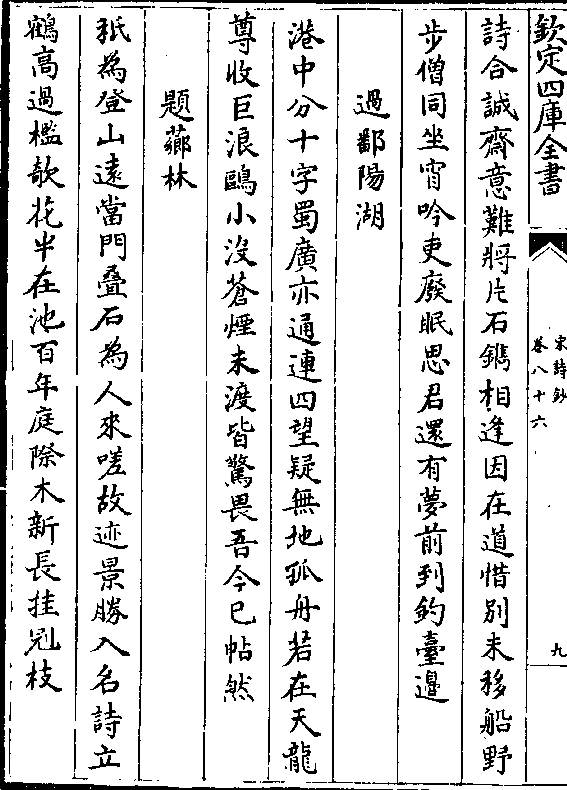 欽定四庫全書
宋詩鈔
卷八十六
九
詩合誠齋意難將片石鐫相逢因在道惜別未移船野
步僧同坐宵吟吏廢眠思君還有夢前到釣臺邉
過鄱陽湖
港中分十字蜀廣亦通連四望疑無地孤舟若在天龍
尊收巨浪鷗小沒蒼煙未渡皆驚畏吾今已帖然
題薌林
秖為登山遠當門疊石為人來嗟故迹景勝入名詩立
鶴高過檻欹花半在池百年庭除木新長挂冠枝